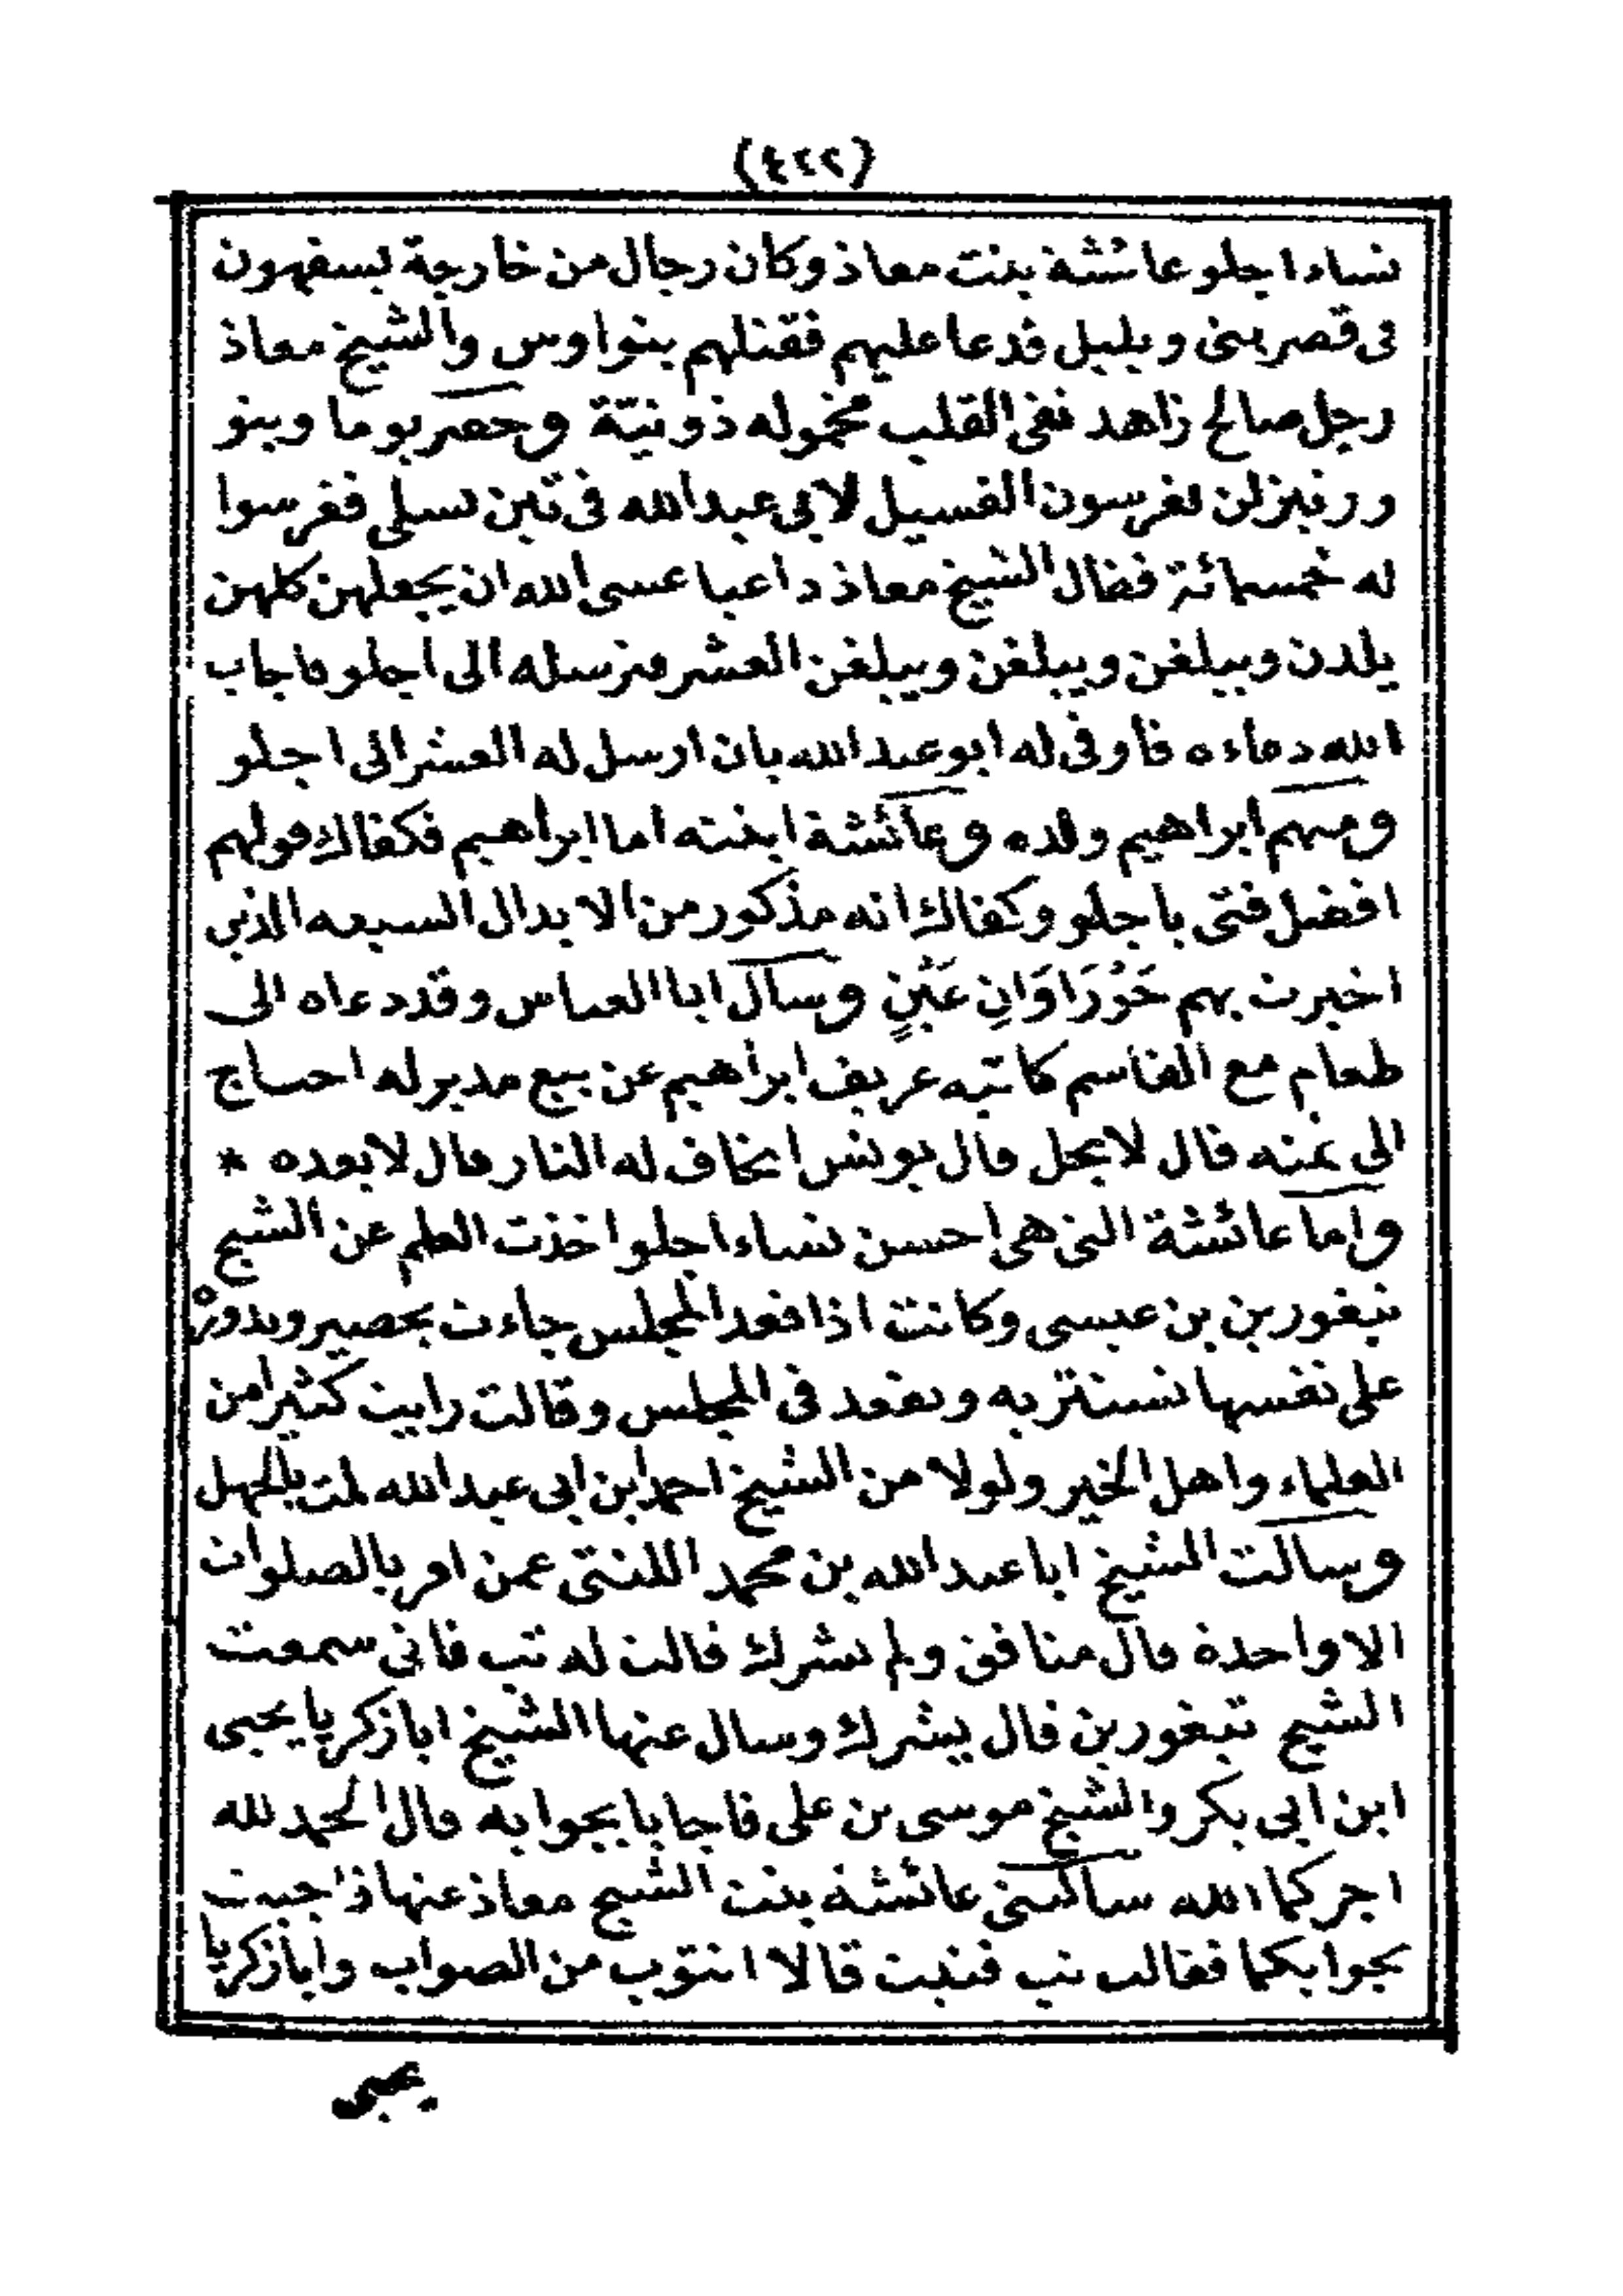 (٤٢٢)
نساء اجلو عائشة بنت معاذ وكان رجال من خارجة يسفهون
فى قصر بنى ويليل فدعا عليهم فقتلهم بنو اوس والشيخ معاذ
رجل صالح زاهد نقى القلب مخموله ذو نيّة وحضر يوما وبنو
ورتيزلن يغرسون الفسيل لابى عبد الله فى تين يسلى فغرسوا
له خمسمائة فقال الشيخ معاذ داعيا عسى الله ان يجعلهن كلهن
يلدن ويبلغن ويبلغن ويبلغن العشر فترسله الى اجلو فاجاب
الله دعاءه فاوفى له ابو عبد الله بان ارسل له العشر الى اجلو
ومنهم ابراهيم ولده وعائشة ابنته اما ابراهيم فكفاك قولهم
افضل فتى باجلو وكفاك انه مذكور من الابدال السبعه الذى
اخبرت بهم حَوْرَاوَانِ عَيْنٍ وسال ابا العباس وقد دعاه الى
طعام مع القاسم كاتبه عريف ابراهيم عن بيع مدبر له احتاج
الى ثمنه قال لا يحل قال يونس اتخاف له النار قال لا بعده *
واما عائشة التى هى احسن نساء اجلو اخذت العلم عن الشيخ
تبغورين بن عيسى وكانت اذا قعد المجلس جاءت بحصير وتدوره
على نفسها تستتر به وتقعد فى المجلس وقالت رايت كثيرا من
العلماء واهل الخير ولولا من الشيخ احمد ابن ابى عبد الله لمت بالجهل
وسالت الشيخ ابا عبد الله بن محمد اللنتى عمن اقر بالصلوات
الا واحدة قال منافق ولم يشرك قالت له تب فانى سمعت
الشيخ تبغورين قال يشرك وسال عنها الشيخ ابا زكريا يحيى
ابن ابى بكر والشيخ موسى بن على فاجابا بجوابه قال الحمد لله
اجركما الله سالتنى عائشة بنت الشيخ معاذ عنها فاجبت
بجوابكما فقالت تب فتبت قالا اتتوب من الصواب وابا زكريا
يحيى